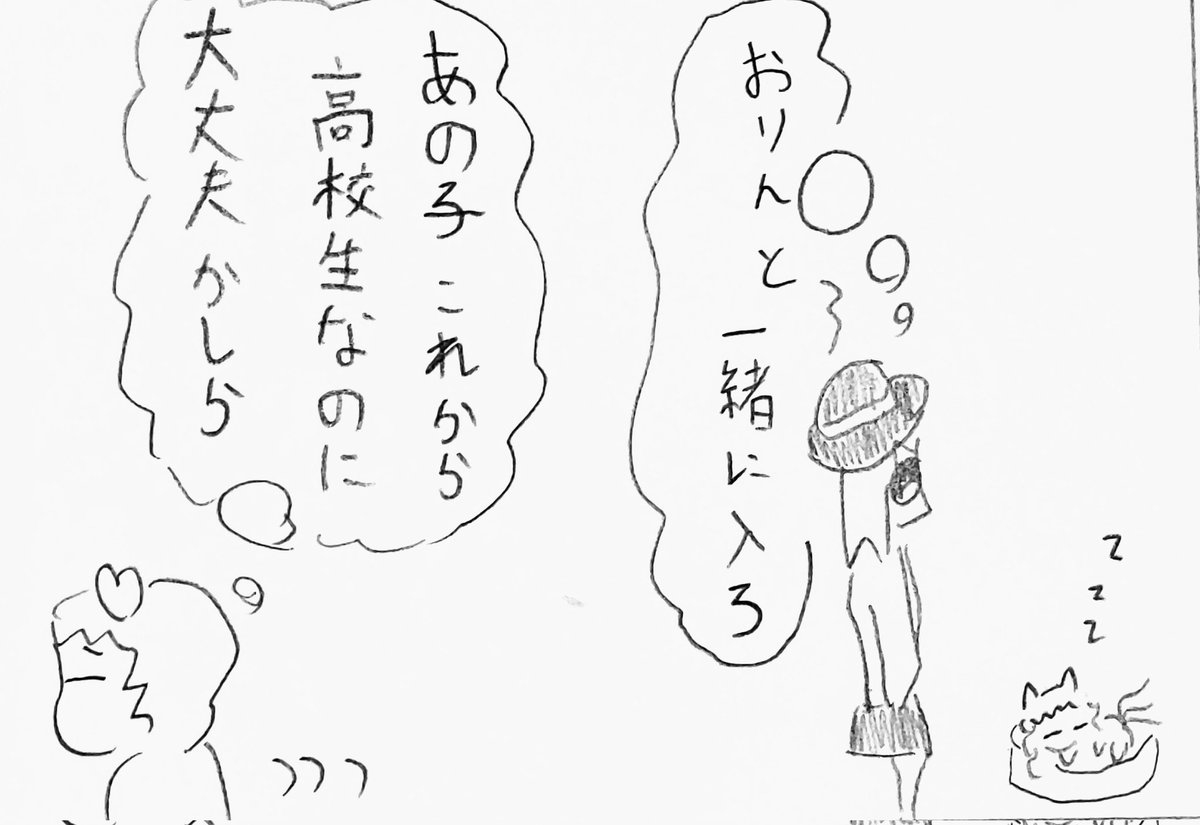 おりんと
一緒に入ろ
z
z
z
あの子これから
高校生なのに
大丈夫かしら